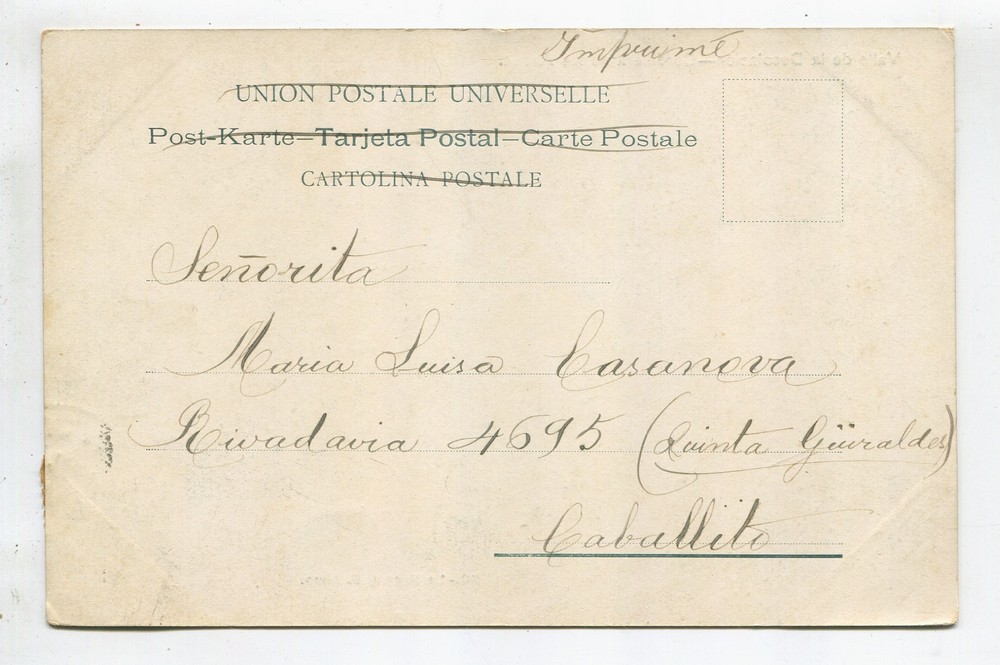 Imprimé
UNION POSTALE UNIVERSELLE
Post-Karte—Tarjeta Postal—Carte Postale
CARTOLINA POSTALE
Señorita
Maria Luisa Casanova
Rivadavia 4695 (Quinta Güiraldes)
Caballito